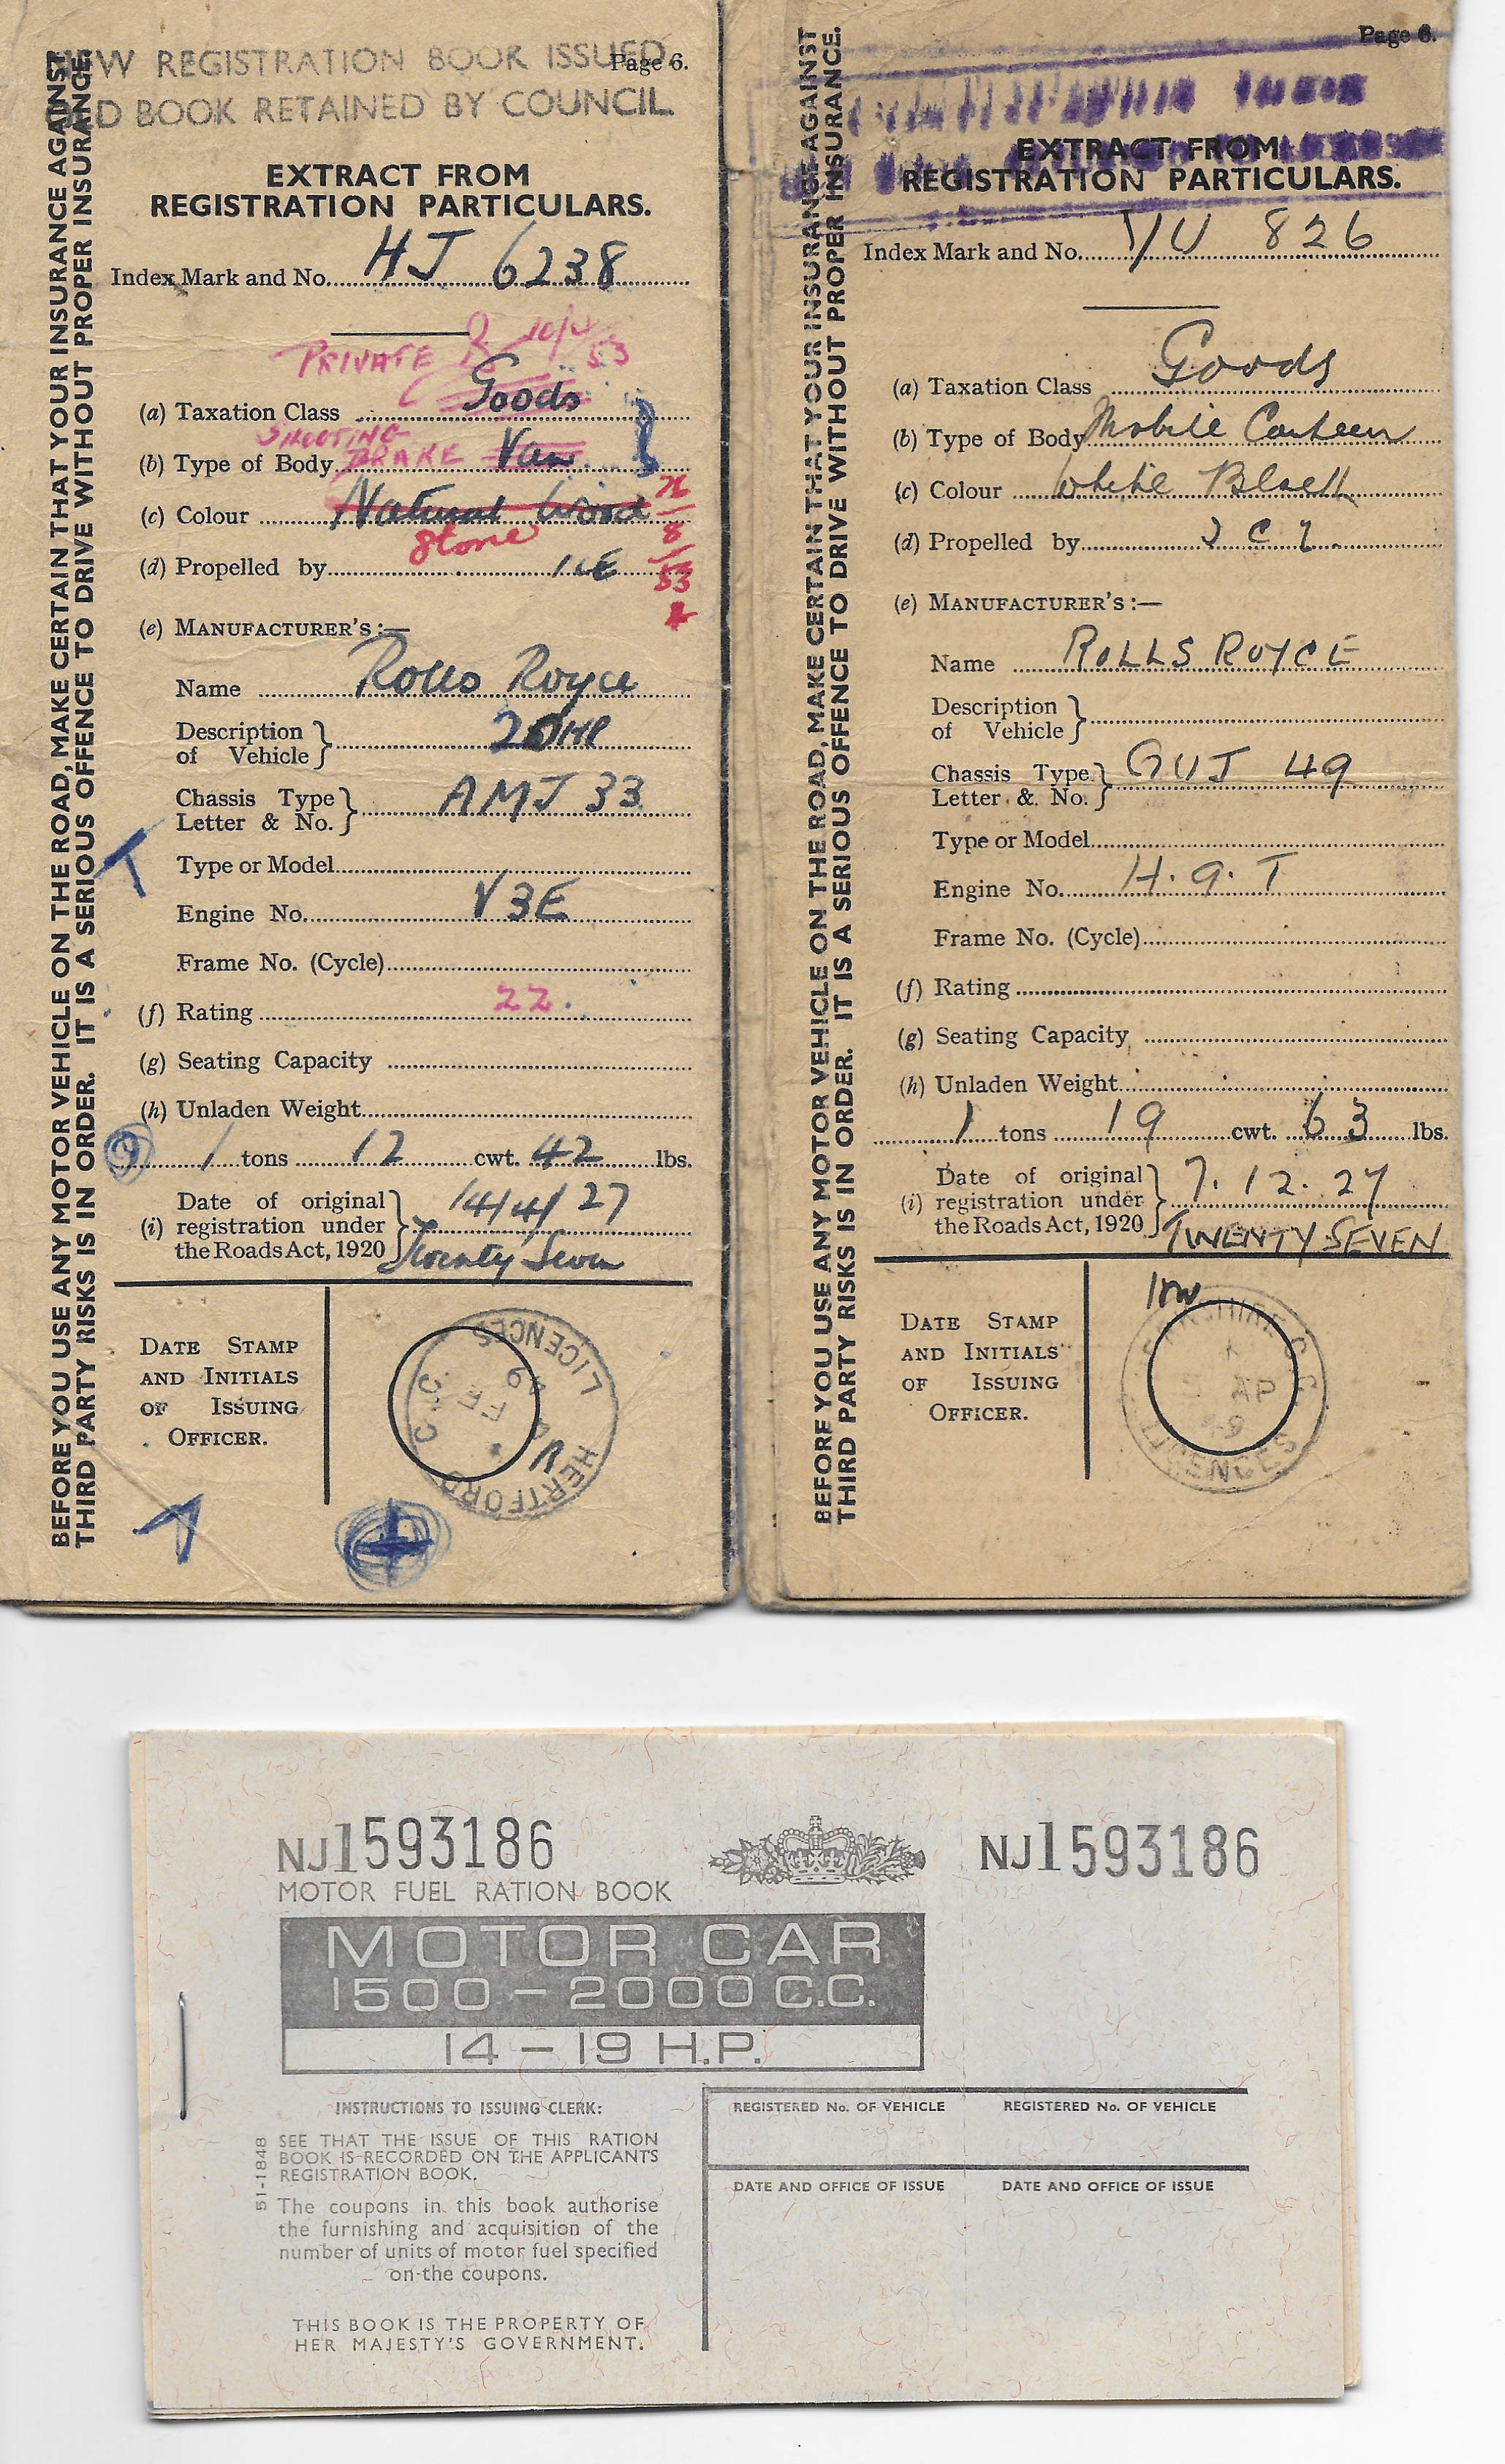 NEW REGISTRATION BOOK ISSUED
OLD BOOK RETAINED BY COUNCIL.
Page 6.
BEFORE YOU USE ANY MOTOR VEHICLE ON THE ROAD, MAKE CERTAIN THAT YOUR INSURANCE AGAINST
THIRD PARTY RISKS IS IN ORDER. IT IS A SERIOUS OFFENCE TO DRIVE WITHOUT PROPER INSURANCE.
EXTRACT FROM
REGISTRATION PARTICULARS.
Index Mark and No. HJ 6238
PRIVATE 53
(a) Taxation Class Goods
SHOOTING
(b) Type of Body BRAKE Van
(c) Colour Natural Wood
Stone
8
53
(d) Propelled by ICE
(e) MANUFACTURER'S :—
Name Rolls Royce
Description of Vehicle } 20HP
Chassis Type Letter & No. } AMJ 33
Type or Model
Engine No. V3E
Frame No. (Cycle)
(f) Rating 22.
(g) Seating Capacity
(h) Unladen Weight
1 tons 12 cwt. 42 lbs.
(i) Date of original
registration under 14/4/27
the Roads Act, 1920 Twenty Seven
DATE STAMP
AND INITIALS
OF ISSUING
OFFICER.
HERTFORD
LICENCES
FE
Page 6.
BEFORE YOU USE ANY MOTOR VEHICLE ON THE ROAD, MAKE CERTAIN THAT YOUR INSURANCE AGAINST
THIRD PARTY RISKS IS IN ORDER. IT IS A SERIOUS OFFENCE TO DRIVE WITHOUT PROPER INSURANCE.
EXTRACT FROM
REGISTRATION PARTICULARS.
Index Mark and No. 826
(a) Taxation Class Goods
(b) Type of Body Mobile Canteen
(c) Colour White Black
(d) Propelled by
(e) MANUFACTURER'S :—
Name ROLLS ROYCE
Description of Vehicle }
Chassis Type Letter & No. } GUJ 49
Type or Model
Engine No. H.9.T
Frame No. (Cycle)
(f) Rating
(g) Seating Capacity
(h) Unladen Weight
1 tons 19 cwt. 63 lbs.
(i) Date of original
registration under 7.12.27
the Roads Act, 1920 TWENTY SEVEN
DATE STAMP
AND INITIALS
OF ISSUING
OFFICER.
AP
LICENCES
NJ1593186
NJ1593186
MOTOR FUEL RATION BOOK
MOTOR CAR
1500 – 2000 C.C.
14 – 19 H.P.
INSTRUCTIONS TO ISSUING CLERK:
SEE THAT THE ISSUE OF THIS RATION
BOOK IS RECORDED ON THE APPLICANT'S
REGISTRATION BOOK.
The coupons in this book authorise
the furnishing and acquisition of the
number of units of motor fuel specified
on the coupons.
THIS BOOK IS THE PROPERTY OF
HER MAJESTY'S GOVERNMENT.
51-1848
REGISTERED No. OF VEHICLE
REGISTERED No. OF VEHICLE
DATE AND OFFICE OF ISSUE
DATE AND OFFICE OF ISSUE